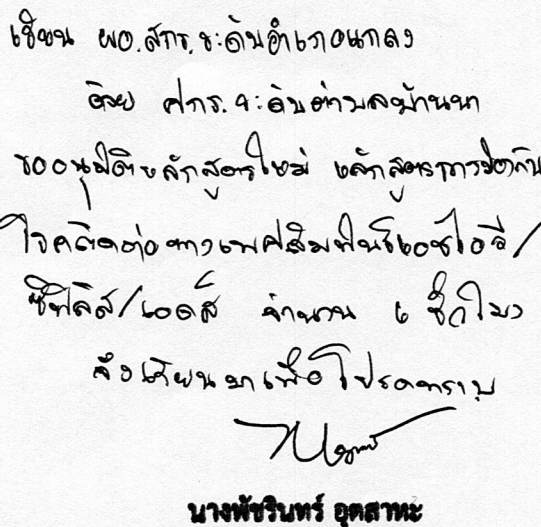 เรียน ผอ.สกร.ระดับอำเภอแกลง
ด้วย ศกร.ระดับตำบลบ้านนา
ขออนุมัติหลักสูตรใหม่ หลักสูตรการป้องกัน
โรคติดต่อทางเพศสัมพันธ์เอชไอวี/
ซิฟิลิส/เอดส์ จำนวน 6 ชั่วโมง
จึงเรียนมาเพื่อโปรดทราบ
นางพัชรินทร์ อุตสาหะ